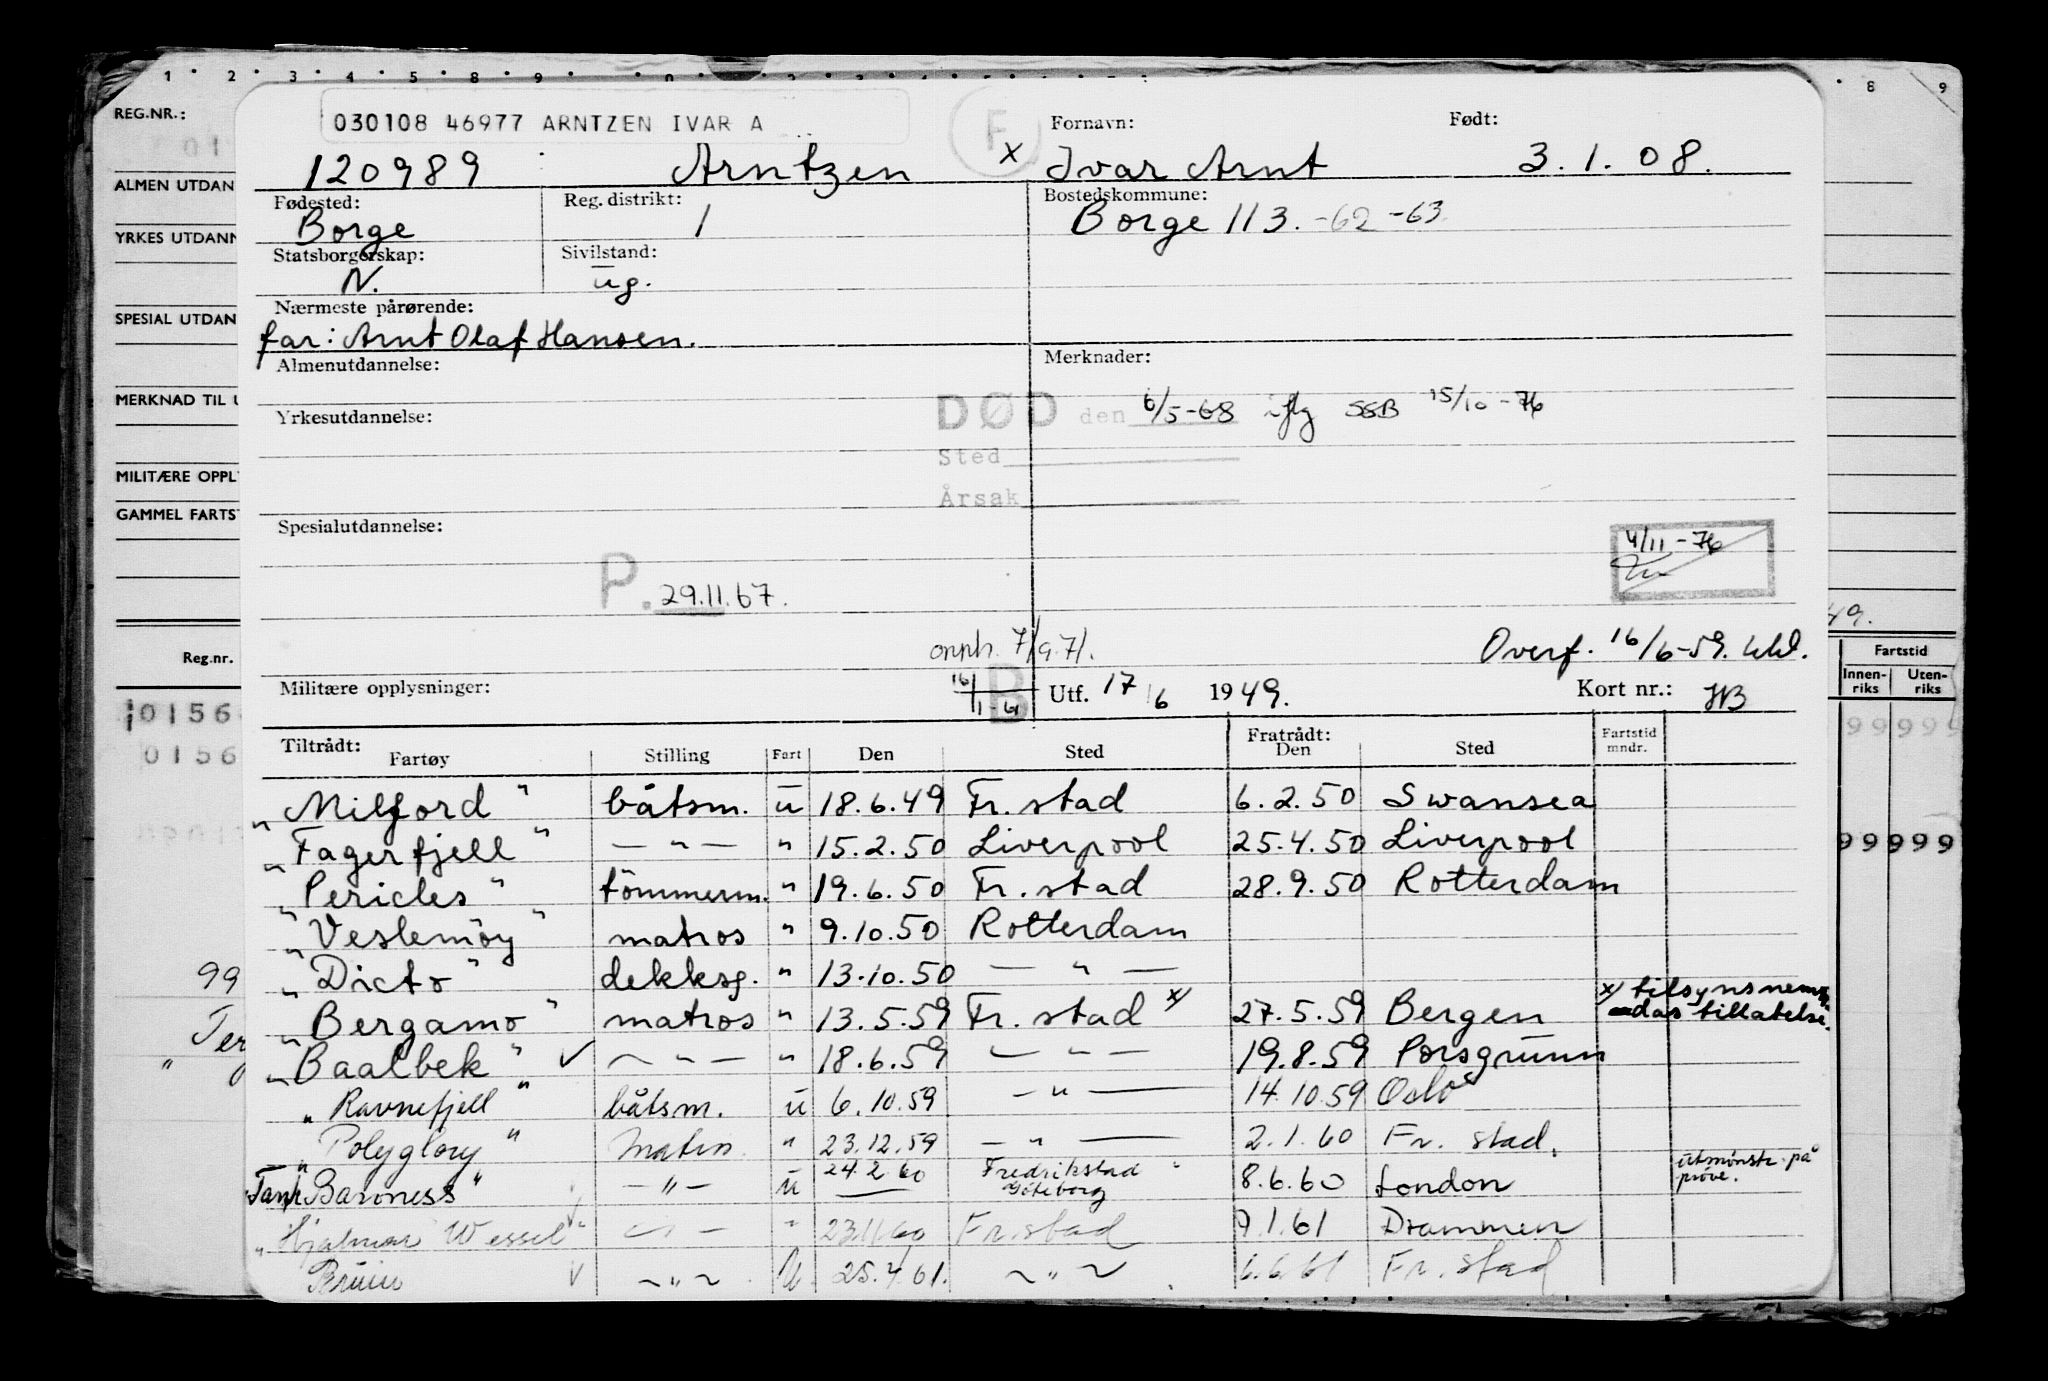 1 2 3 4 5 6 7 8 9 0 8 9
REG.NR.:
030108 46977 ARNTZEN IVAR A
F
Fornavn: Født:
120989 Arntzen x Ivar Arnt 3.1.08.
ALMEN UTDAN
Fødested: Reg. distrikt: Bostedskommune:
Borge 1 Borge 113. -62 -63.
YRKES UTDANN
Statsborgerskap: Sivilstand:
N. ug.
Nærmeste pårørende:
SPESIAL UTDAN
far: Arnt Olaf Hansen.
Almenutdannelse: Merknader:
MERKNAD TIL U
DØD den 6/5-68 iflg SSB 15/10-76
Yrkesutdannelse:
Sted
MILITÆRE OPPL
Årsak
GAMMEL FARTST
Spesialutdannelse:
4/11-76
P. 29.11.67.
49.
opph. 7/9.71. Overf. 16/6-59.
Reg.nr. Fartstid
Militære opplysninger: 16/1-61 B Utf. 17/6 1949. Kort nr.: HB
Innenriks Utenriks
0156
0156
Tiltrådt: Fratrådt: Fartstid mndr.
Fartøy Stilling Fart Den Sted Den Sted
"Milford" båtsm. u 18.6.49 Fr.stad 6.2.50 Swansea
"Fagerfjell" — " — " 15.2.50 Liverpool 25.4.50 Liverpool
99999
"Pericles" tömmerm. " 19.6.50 Fr.stad 28.9.50 Rotterdam
"Veslemöy" matros " 9.10.50 Rotterdam
"Dicto" dekksg. " 13.10.50 — " —
99
"Bergamo" matros " 13.5.59 Fr.stad x) 27.5.59 Bergen x) tilsynsnemndas tillatelse.
"Baalbek" ✓ — " — " 18.6.59 — " — 19.8.59 Porsgrunn
"Ravnefjell" båtsm. u 6.10.59 — " — 14.10.59 Oslo
"Polyglory" Matros " 23.12.59 — " — 2.1.60 Fr.stad.
Tank "Baroness" — " — u 24.2.60 Fredrikstad Göteborg 8.6.60 London utmønstr. på prøve.
"Hjalmar Wessel" — " — " 23.11.60 Fr.stad 9.1.61 Drammen
Bruin ✓ — " — U. 25.4.61. — " — 6.6.61 Fr.stad